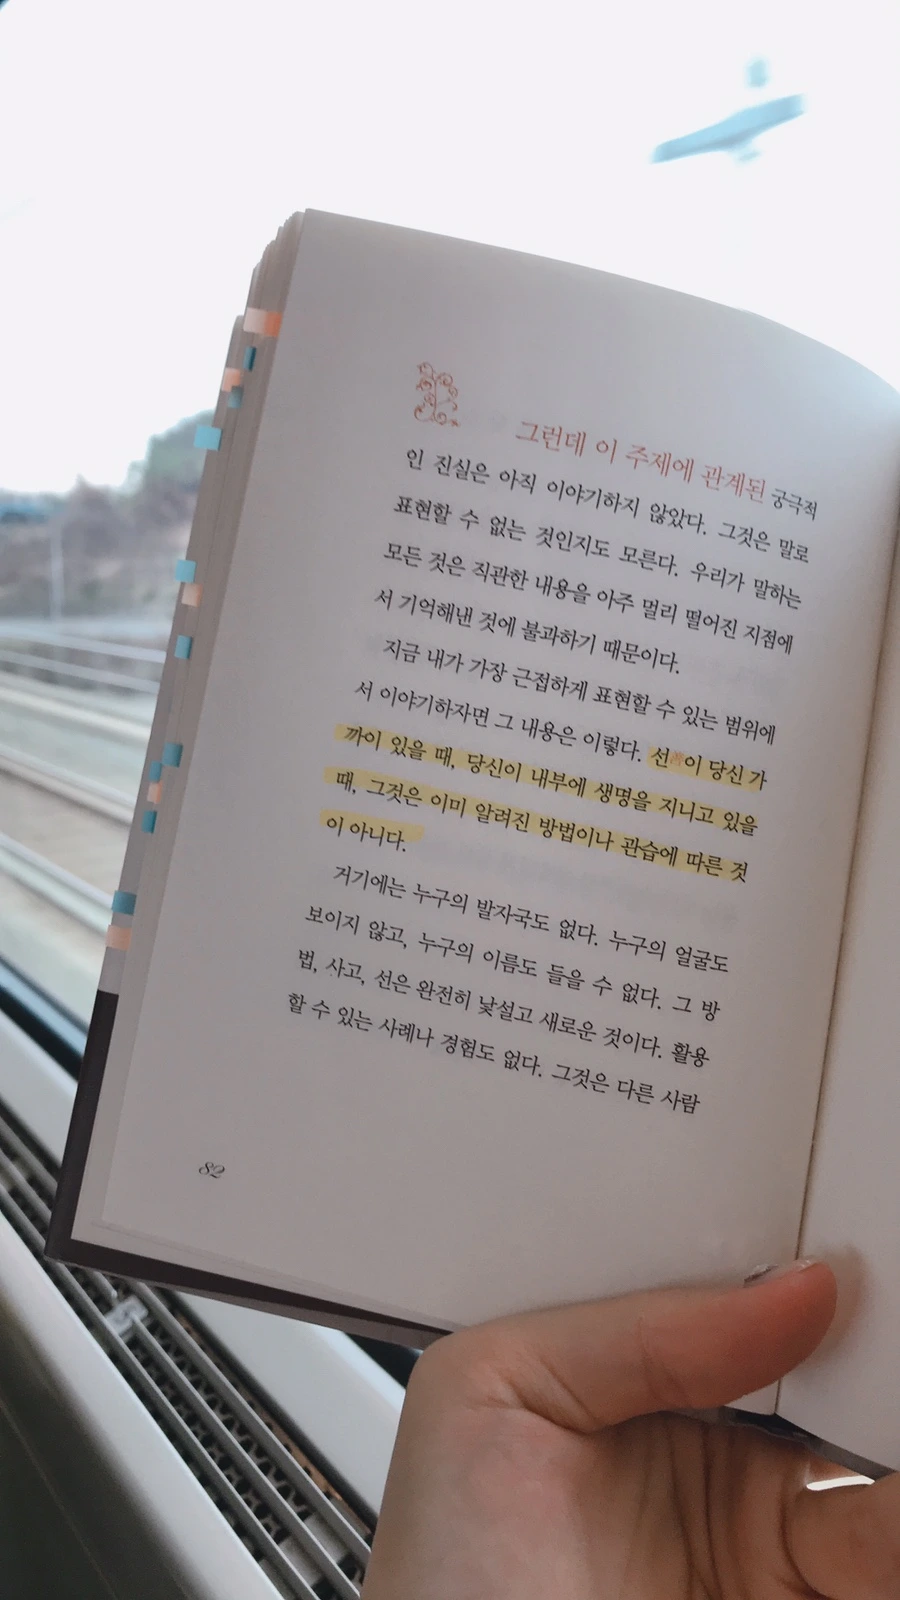 그런데 이 주제에 관계된 궁극적
인 진실은 아직 이야기하지 않았다. 그것은 말로
표현할 수 없는 것인지도 모른다. 우리가 말하는
모든 것은 직관한 내용을 아주 멀리 떨어진 지점에
서 기억해낸 것에 불과하기 때문이다.
지금 내가 가장 근접하게 표현할 수 있는 범위에
서 이야기하자면 그 내용은 이렇다. 선善이 당신 가
까이 있을 때, 당신이 내부에 생명을 지니고 있을
때, 그것은 이미 알려진 방법이나 관습에 따른 것
이 아니다.
거기에는 누구의 발자국도 없다. 누구의 얼굴도
보이지 않고, 누구의 이름도 들을 수 없다. 그 방
법, 사고, 선은 완전히 낯설고 새로운 것이다. 활용
할 수 있는 사례나 경험도 없다. 그것은 다른 사람
82